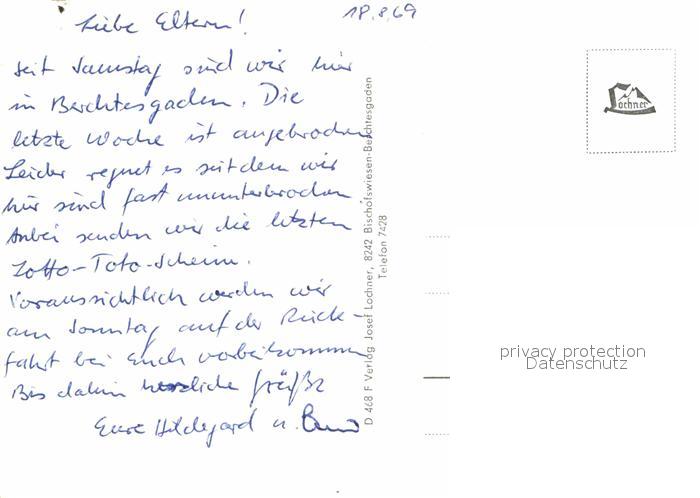 18.8.69
Liebe Eltern!
seit Samstag sind wir hier
in Berchtesgaden. Die
letzte Woche ist angebrochen
Leider regnet es seitdem wir
hier sind fast ununterbrochen.
Anbei senden wir die letzten
Lotto-Toto-Scheine.
Voraussichtlich werden wir
am Sonntag auf der Rück-
fahrt bei Euch vorbeikommen
Bis dahin herzliche Grüße
Eure Hildegard u.
D 468 F Verlag Josef Lochner, 8242 Bischofswiesen-Berchtesgaden
Telefon 7428
Lochner
privacy protection
Datenschutz